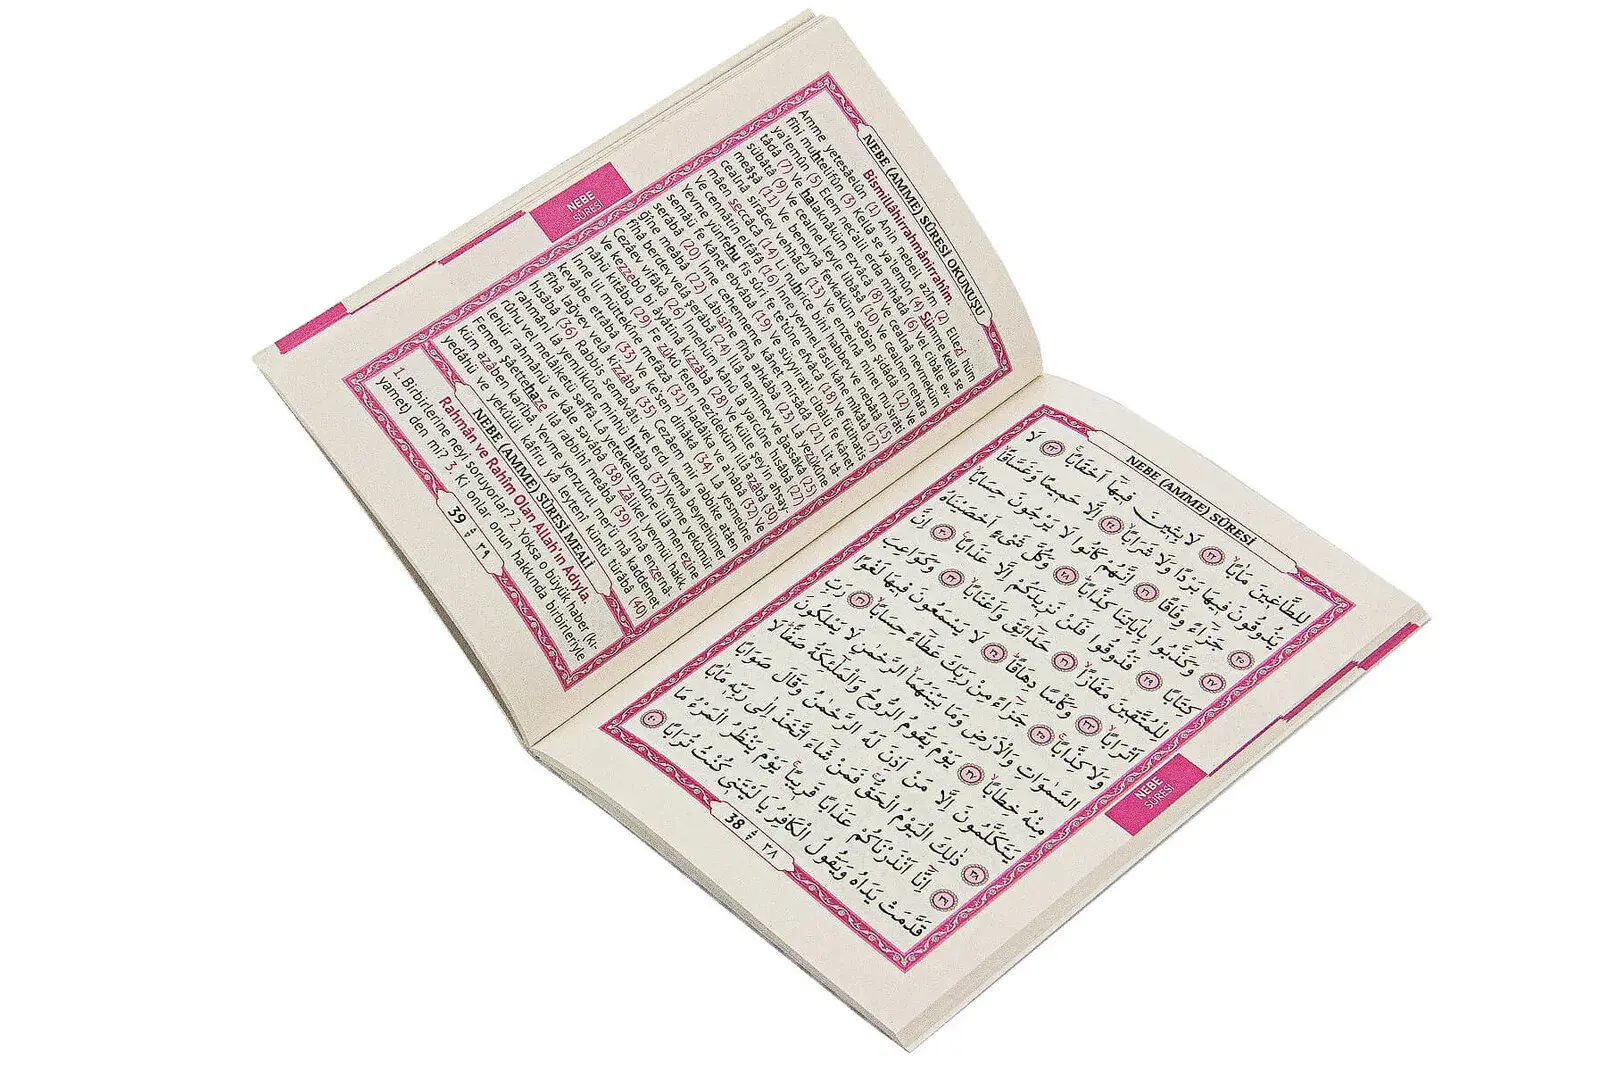 NEBE (AMME) SÛRESİ
لِلطَّاغِينَ مَاٰبًا ﴿٢٢﴾ لَابِثِينَ فِيهَا اَحْقَابًا ﴿٢٣﴾ لَا
يَذُوقُونَ فِيهَا بَرْدًا وَلَا شَرَابًا ﴿٢٤﴾ اِلَّا حَمِيمًا وَغَسَّاقًا
﴿٢٥﴾ جَزَاءً وِفَاقًا ﴿٢٦﴾ اِنَّهُمْ كَانُوا لَا يَرْجُونَ حِسَابًا
﴿٢٧﴾ وَكَذَّبُوا بِاٰيَاتِنَا كِذَّابًا ﴿٢٨﴾ وَكُلَّ شَيْءٍ اَحْصَيْنَاهُ
كِتَابًا ﴿٢٩﴾ فَذُوقُوا فَلَنْ نَزِيدَكُمْ اِلَّا عَذَابًا ﴿٣٠﴾ اِنَّ
لِلْمُتَّقِينَ مَفَازًا ﴿٣١﴾ حَدَائِقَ وَاَعْنَابًا ﴿٣٢﴾ وَكَوَاعِبَ
اَتْرَابًا ﴿٣٣﴾ وَكَأْسًا دِهَاقًا ﴿٣٤﴾ لَا يَسْمَعُونَ فِيهَا لَغْوًا
وَلَا كِذَّابًا ﴿٣٥﴾ جَزَاءً مِنْ رَبِّكَ عَطَاءً حِسَابًا ﴿٣٦﴾ رَبِّ
السَّمٰوَاتِ وَالْاَرْضِ وَمَا بَيْنَهُمَا الرَّحْمٰنِ لَا يَمْلِكُونَ
مِنْهُ خِطَابًا ﴿٣٧﴾ يَوْمَ يَقُومُ الرُّوحُ وَالْمَلٰئِكَةُ صَفًّا لَا
يَتَكَلَّمُونَ اِلَّا مَنْ اَذِنَ لَهُ الرَّحْمٰنُ وَقَالَ صَوَابًا
﴿٣٨﴾ ذٰلِكَ الْيَوْمُ الْحَقُّ فَمَنْ شَاءَ اتَّخَذَ اِلٰى رَبِّهٖ مَاٰبًا
﴿٣٩﴾ اِنَّا اَنْذَرْنَاكُمْ عَذَابًا قَرِيبًا يَوْمَ يَنْظُرُ الْمَرْءُ مَا
قَدَّمَتْ يَدَاهُ وَيَقُولُ الْكَافِرُ يَا لَيْتَنِي كُنْتُ تُرَابًا ﴿٤٠﴾
38 ٣٨
NEBE
SÛRESİ
NEBE (AMME) SÛRESİ OKUNUŞU
Bismillâhirrahmânirrahîm.
Amme yetesâelûn (1) Anin nebeil azîm (2) Ellezî hüm
fîhi muhtelifûn (3) Kellâ se ya'lemûn (4) Sümme kellâ se
ya'lemûn (5) Elem nec'alil erda mihâdâ (6) Vel cibâle ev-
tâdâ (7) Ve halaknâküm ezvâcâ (8) Ve cealnâ nevmeküm
sübâtâ (9) Ve cealnel leyle libâsâ (10) Ve cealnen nehâra
meâşâ (11) Ve beneynâ fevkaküm seb'an şidâdâ (12) Ve
cealnâ sirâcev vehhâcâ (13) Ve enzelnâ minel mu'sırâti
mâen seccâcâ (14) Li nuhrice bihî habbev ve nebâtâ (15)
Ve cennâtin elfâfâ (16) İnne yevmel fasli kâne mîkâtâ (17)
Yevme yünfehu fis sûri fe te'tûne efvâcâ (18) Ve fütihatis
semâü fe kânet ebvâbâ (19) Ve süyyiratil cibâlü fe kânet
serâbâ (20) İnne cehenneme kânet mirsâdâ (21) Lit tâ-
gîne meâbâ (22) Lâbisîne fîhâ ahkâbâ (23) Lâ yezûkûne
fîhâ berdev velâ şerâbâ (24) İllâ hamîmev ve ğassâkâ (25)
Cezâev vifâkâ (26) İnnehüm kânû lâ yercûne hısâbâ (27)
Ve kezzebû bi âyâtinâ kizzâbâ (28) Ve külle şey'in ahsay-
nâhü kitâbâ (29) Fe zûkû felen nezîdeküm illâ azâbâ (30)
İnne lil müttekîne mefâzâ (31) Hadâika ve a'nâbâ (32) Ve
kevâıbe etrâbâ (33) Ve ke'sen dihâkâ (34) Lâ yesmeûne
fîhâ lağvev velâ kizzâbâ (35) Cezâem mir rabbike atâen
hısâbâ (36) Rabbis semâvâti vel erdı vemâ beynehümer
rahmâni lâ yemlikûne minhü hıtâbâ (37) Yevme yekûmür
rûhu vel melâiketü saffâ. Lâ yetekellemûne illâ men ezine
lehür rahmânü ve kâle savâbâ (38) Zâlikel yevmül hakk.
Femen şâettehaze ilâ rabbihî meâbâ (39) İnnâ enzernâ-
küm azâben karîbâ. Yevme yenzurul mer'ü mâ kaddemet
yedâhü ve yekûlül kâfiru yâ leytenî küntü türâbâ (40)
NEBE (AMME) SÛRESİ MEALİ
Rahmân ve Rahîm Olan Allah'ın Adıyla.
1. Birbirlerine neyi soruyorlar? 2. Yoksa o büyük haber (kı-
yamet) den mi? 3. Ki onlar onun hakkında birbirleriyle
39 ٣٩
NEBE
SÛRESİ